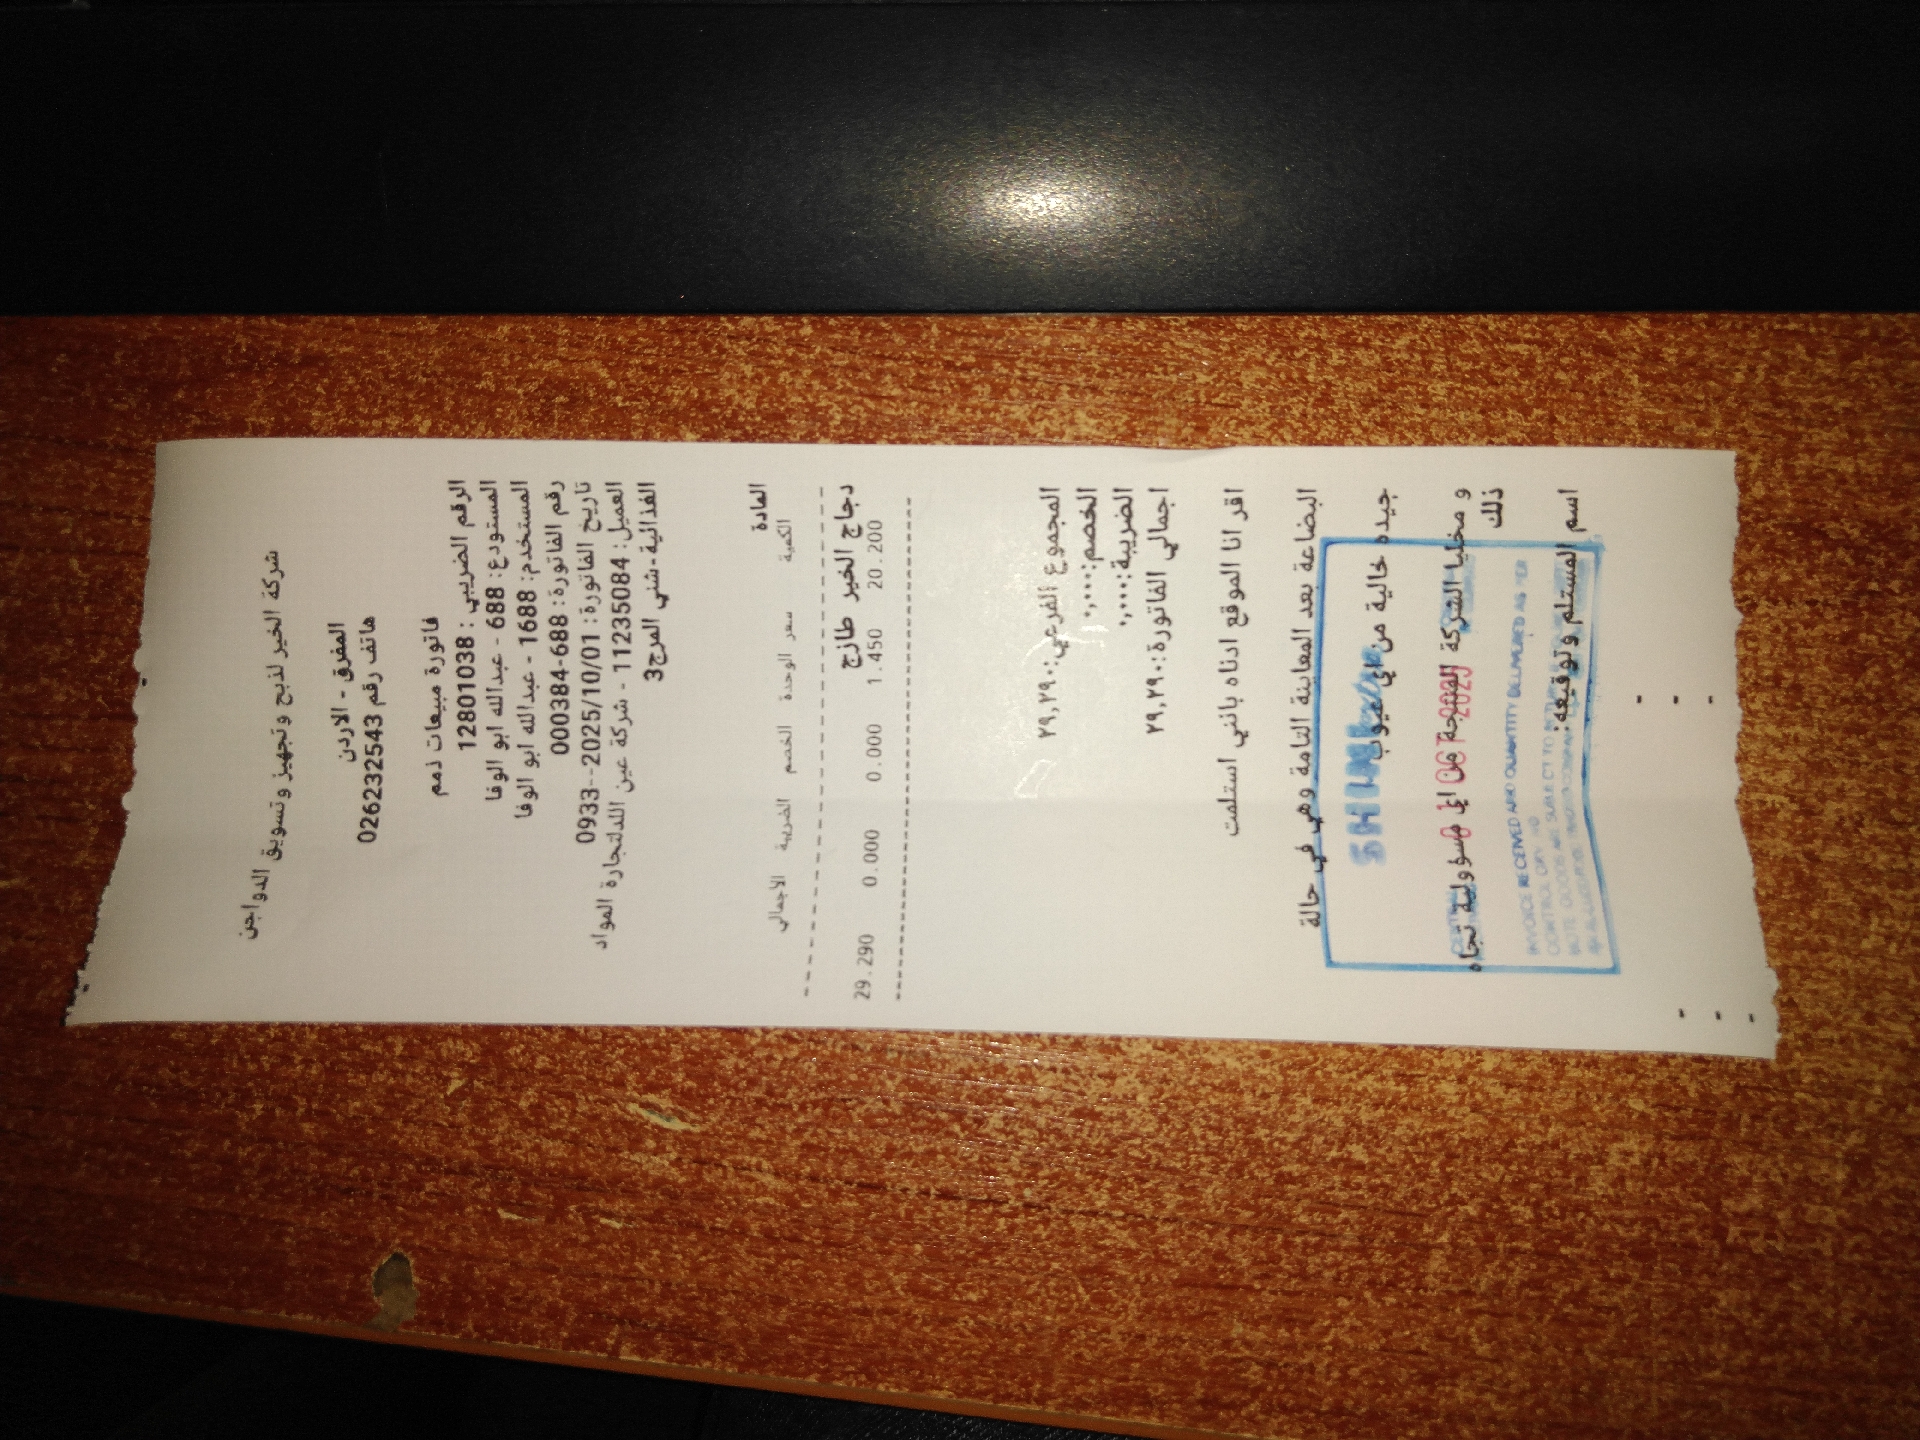 شركة الخير لذبح وتجهيز وتسويق الدواجن
المفرق - الاردن
هاتف رقم 0262332543
فاتورة مبيعات ذمم
الرقم الضريبي : 12801038
المستودع: 688 - عبدالله ابو الوفا
المستخدم: 1688 - عبدالله ابو الوفا
رقم الفاتورة: 688-000384
تاريخ الفاتورة: 2025/10/01--0933
العميل: 11235084 - شركة عين اللدلتجارة المواد
الغذائية-شني المرج3
المادة
الكمية سعر الوحدة الخصم الضريبة الاجمالي
دجاج الخير طازج
20.200 1.450 0.000 0.000 29.290
المجموع الفرعي:٢٩,٢٩٠
الخصم:٠,٠٠٠
الضريبة:٠,٠٠٠
اجمالي الفاتورة:٢٩,٢٩٠
اقر انا الموقع ادناه بانني استلمت
البضاعة بعد المعاينة التامة وهي في حالة
جيده خالية من اي عيوب
و مخليا الشركة المنتجة من اي مسؤولية تجاه
ذلك
OCT 2025
INVOICE RECEIVED AND QUANTITY DELIVERED AS PER
اسم المستلم وتوقيعه: